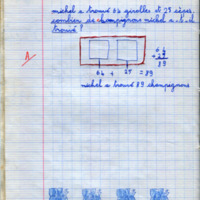 michel a trouvé 64 girolles et 25 cèpes.
combien de champignons michel a-t-il
trouvé ?
64 + 25 = 89
64
+ 25
89
michel a trouvé 89 champignons
A